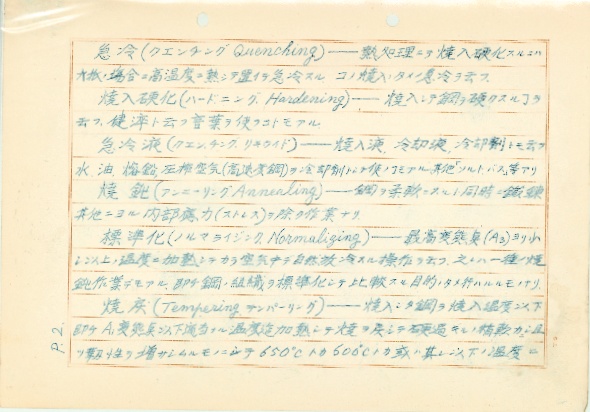 急冷(クエンチング Quenching)——熱処理ニテ焼入硬化スルニハ
大抵ノ場合ニ高温度ニ熱シテ置イテ急冷スル コノ焼入ノタメノ急冷ヲ云フ.
焼入硬化(ハードニング. Hardening)—— 焼入シテ鋼ヲ硬クスル丁ヲ
云フ. 健淬ト云フ言葉ヲ使フコトモアル.
急冷液(クエンチング. リキウイド)——焼入液. 冷却液. 冷却剤トモ云フ
水. 油. 熔鉛. 圧搾空気(高速度鋼)ヲ冷却剤トシテ使フ丁モアル 其他ソルトバス等アリ
焼鈍(アンニーリング Annealing)——鋼ヲ柔軟ニスルト同時ニ鍛錬
其他ニヨル内部応力(ストレス)ヲ除ク作業ナリ.
標準化(ノルマライジング. Normalizing)——最高変態点(A3)ヨリ少
シ以上ノ温度ニ加熱シテカラ空気中デ自然放冷スル操作ヲ云フ. 之レハ一種ノ焼
鈍作業デモアル. 即チ鋼ノ組織ヲ標準化シテ比較スル目的ノタメ行ハルルモノナリ.
焼戻(Tempering テンパーリング)——焼入シタ鋼ヲ焼入温度以下
即チA1変態点以下適当ナル温度迄加熱シテ焼ヲ戻シテ硬過ギ
ヲ靱性ヲ増サシムルモノニシテ650°Cトカ600°Cトカ或ハ其レ以下ノ温度ニ
P.2.